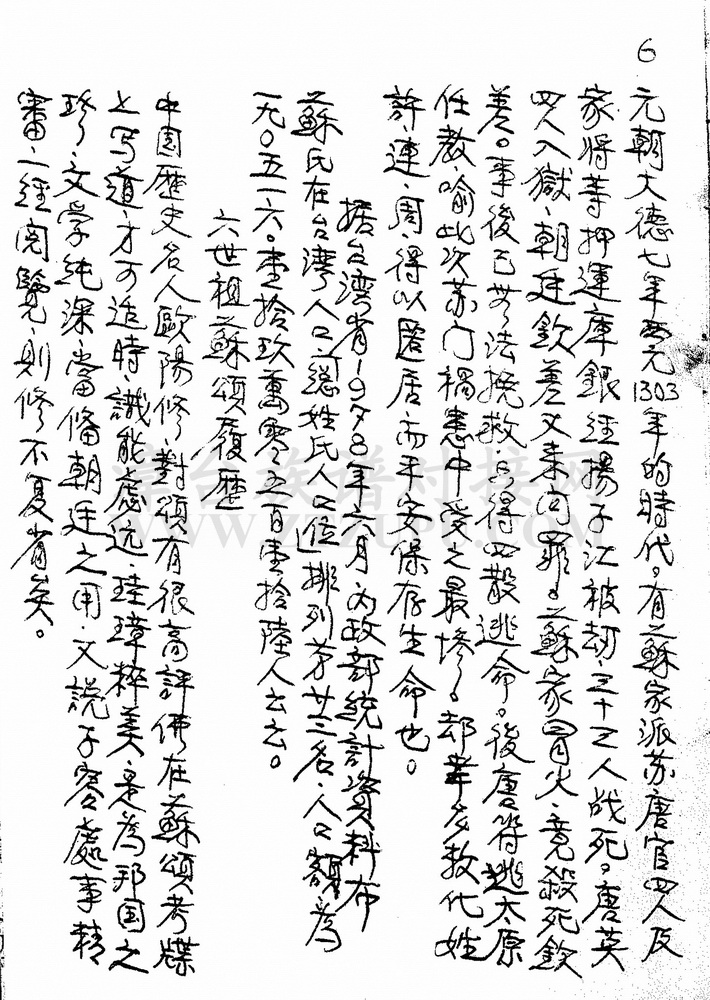 6
元朝大德七年西元1303年的時代。有蘇家派苏唐官四人及
家将等押運庫銀经揚子江被劫、三十三人战死。唐英
四人入獄、朝廷欽差又来问罪。蘇家冒火、竟殺死欽
差。事後已無法挽救、只得四散逃命。後唐符逃太原
任教、喻此次苏门禍患中受之最惨。却幸 教化姓
許、連、周、得以匿居、而平安保存生命也。
据台湾省1978年六月、内政部統計資料布
蘇氏在台湾人口總姓氏人口位排列第廿三名、人口額為
一九〇五一六。壹拾玖萬零五百壹拾陸人云云。
六世祖蘇頌履歷
中国歷史名人歐陽修、對頌有很高評 在蘇頌考牒
上写道、才可适時、識能慮远、珪璋粹美、是為邦国之
珍、文学纯深、當備朝廷之用、文説子容處事精
審、一經阅覽、則修不复省矣。
漳台族谱对接网